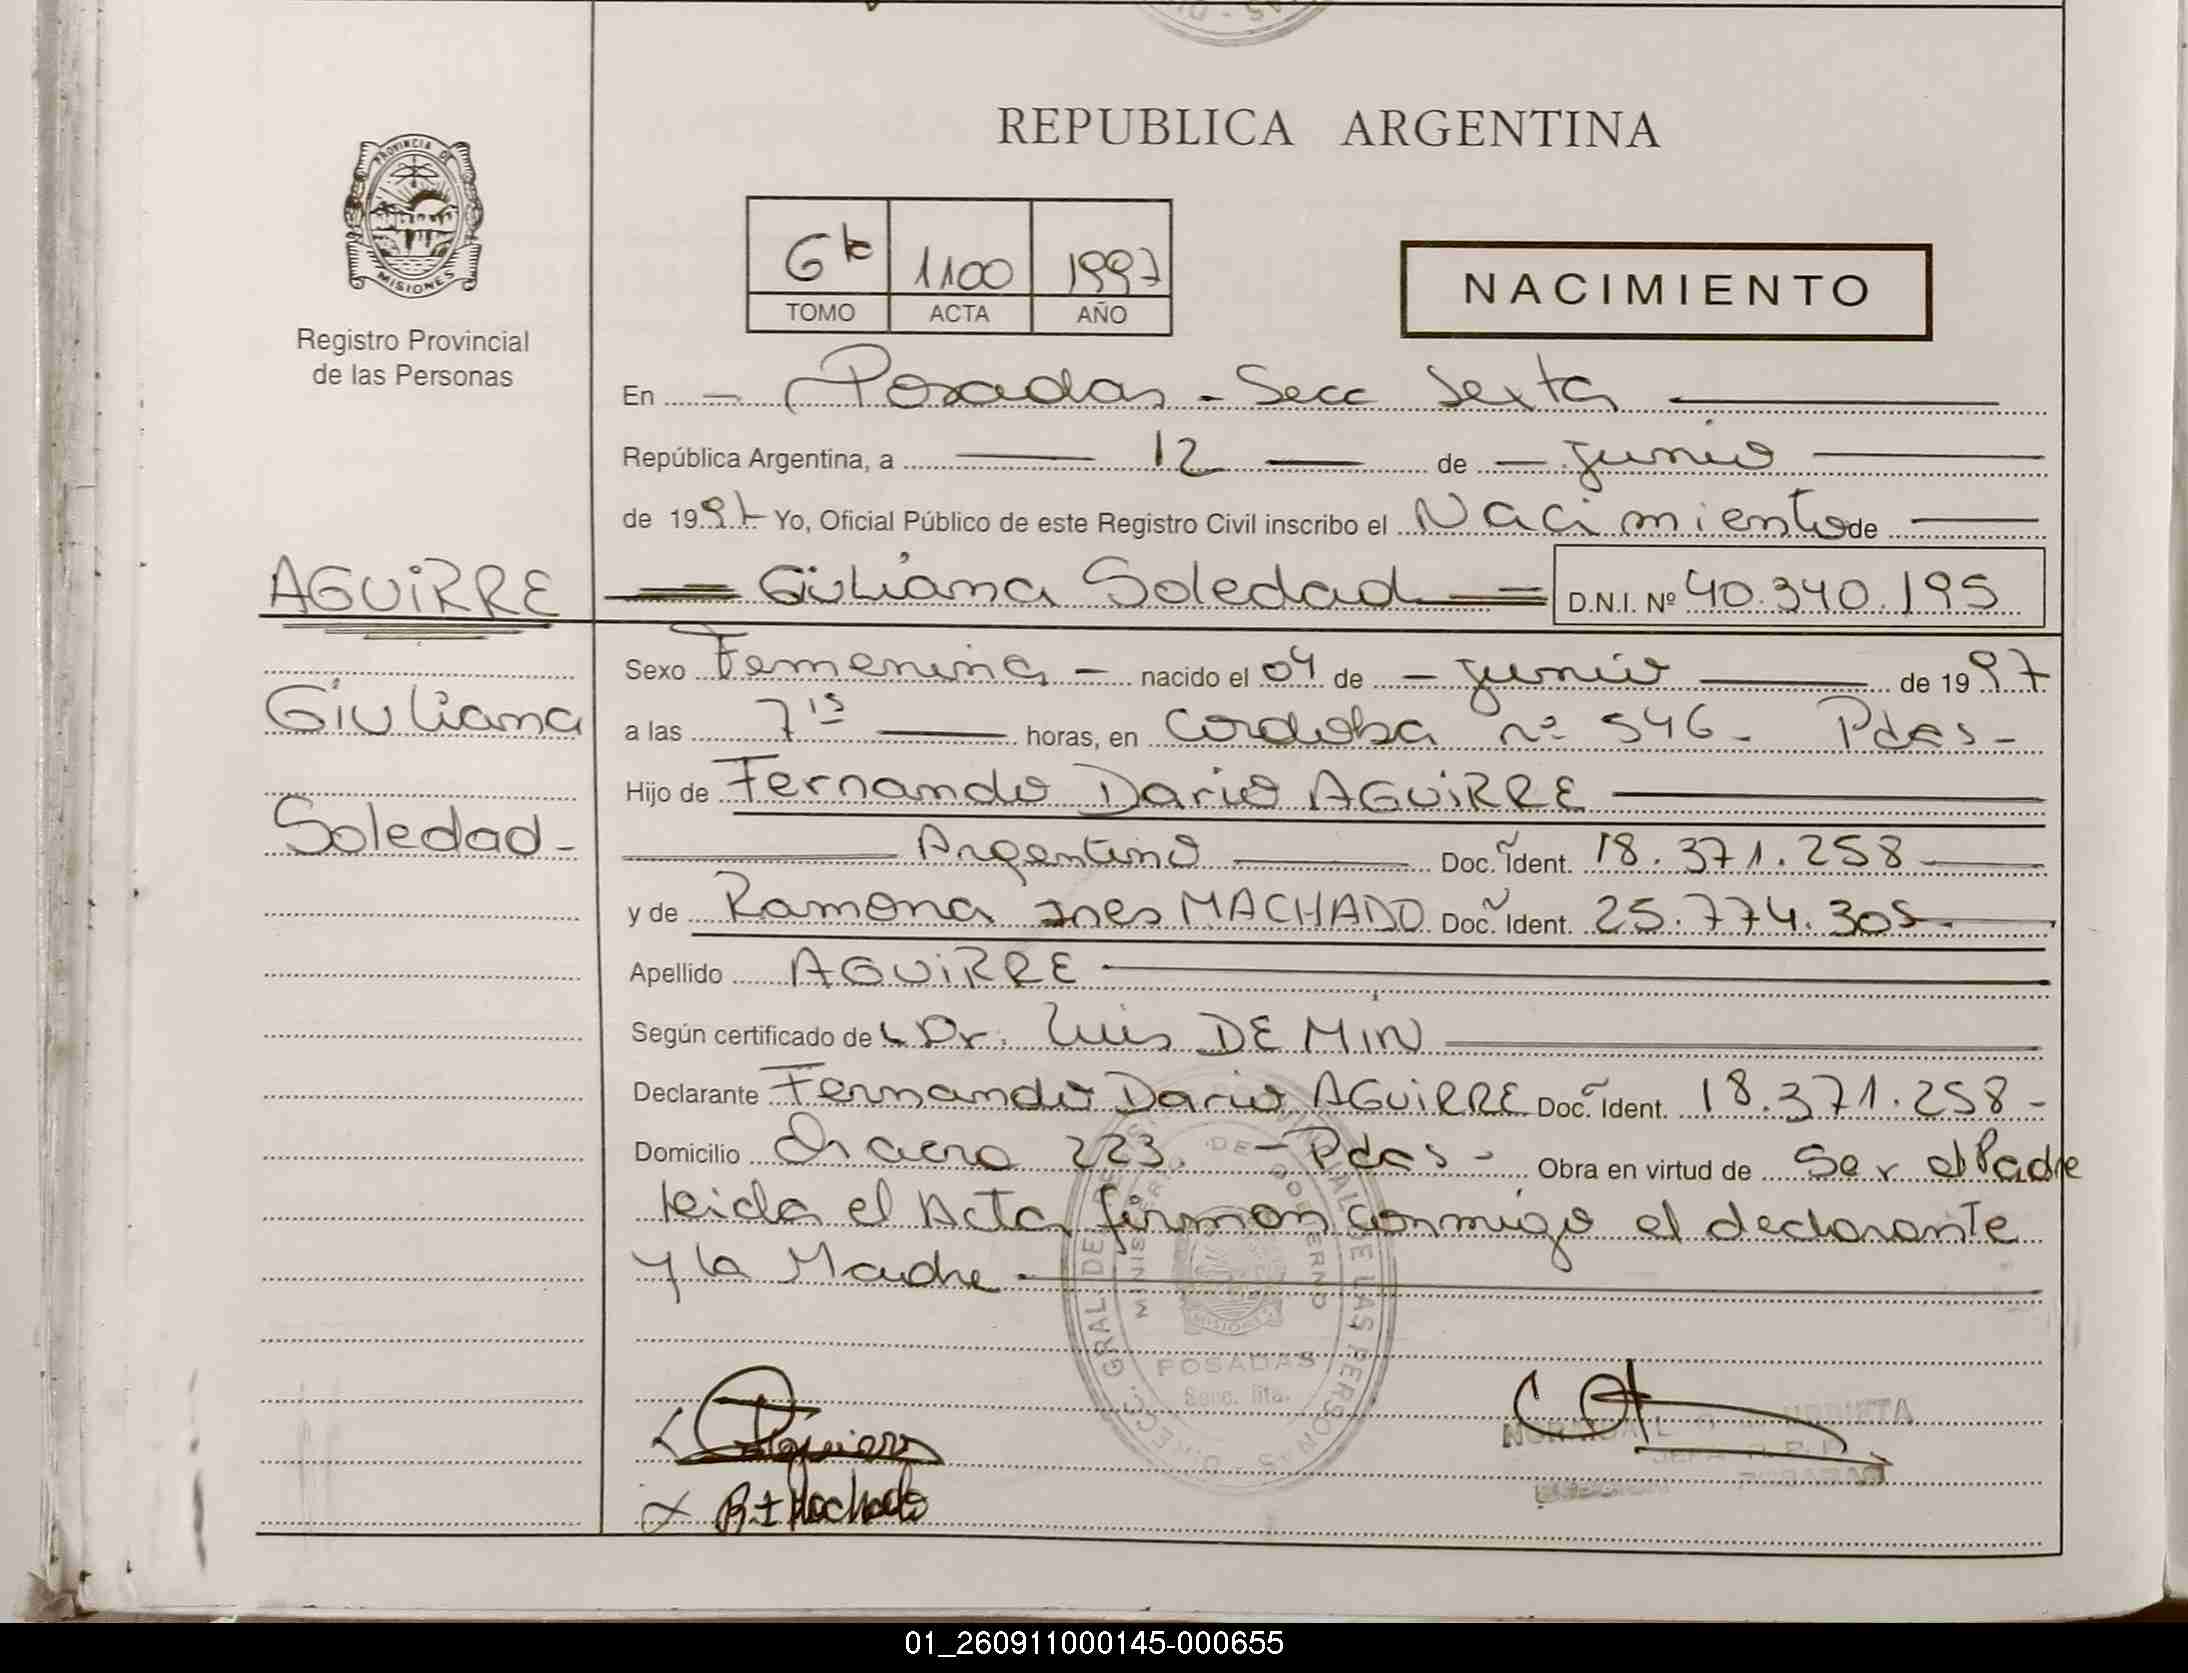 REPUBLICA ARGENTINA
PROVINCIA DE
MISIONES
Registro Provincial
de las Personas
6to 1100 1997
TOMO ACTA AÑO
NACIMIENTO
En - Posadas - Secc Sexta
República Argentina, a 12 de - junio
de 1997 Yo, Oficial Público de este Registro Civil inscribo el Nacimiento de
AGUiRRE
Giuliana Soledad D.N.I. Nº 40.340.195
Sexo Femenina - nacido el 04 de - junio de 1997
Giuliana
a las 7 15 horas, en Cordoba nº 546 - Pdas -
Hijo de Fernando Dario AGUiRRE
Soledad -
Argentino Doc. Ident. 18.371.258
y de Ramona Ines MACHADO Doc. Ident. 25.774.305
Apellido AGUiRRE
Según certificado de Dr. Luis DE MIN
Declarante Fernando Dario AGUiRRE Doc. Ident. 18.371.258 -
Domicilio 223. - Pdas - Obra en virtud de Ser el Padre
leida el Acta firman conmigo el declarante
y la Madre
DIRECC. GRAL. DE LAS PERSONAS
MINISTERIO DE GOBIERNO
MISIONES
POSADAS
Secc. 6ta.
R I Machado
JEFA
01_260911000145-000655